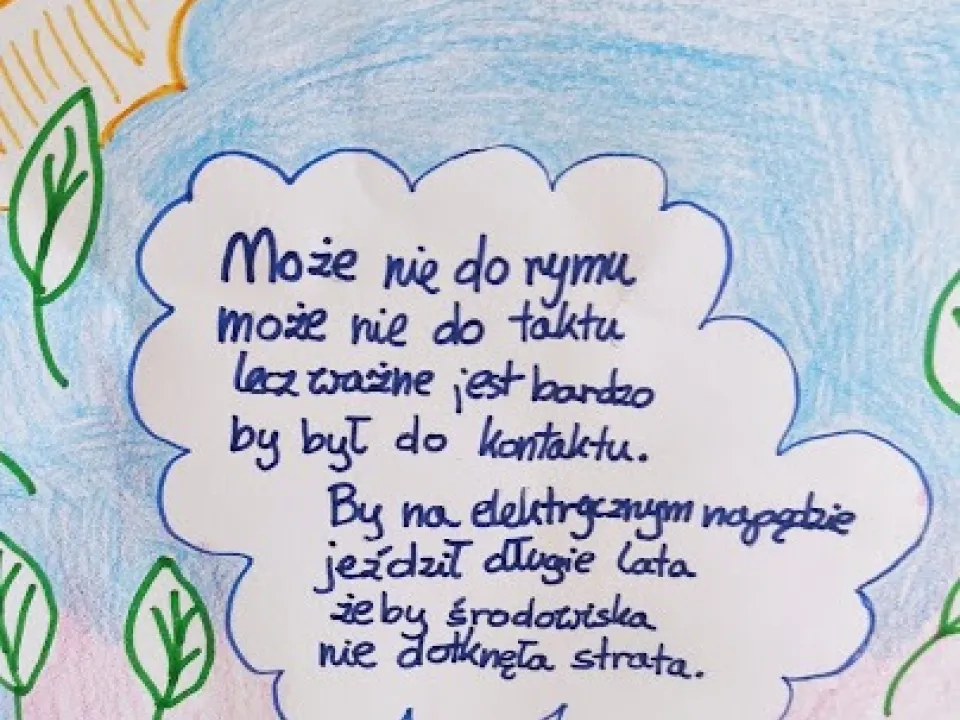 Może nie do rymu
może nie do taktu
lecz ważne jest bardzo
by był do kontaktu.
By na elektrycznym napędzie
jeździł długie lata
żeby środowiska
nie dotknęła strata.